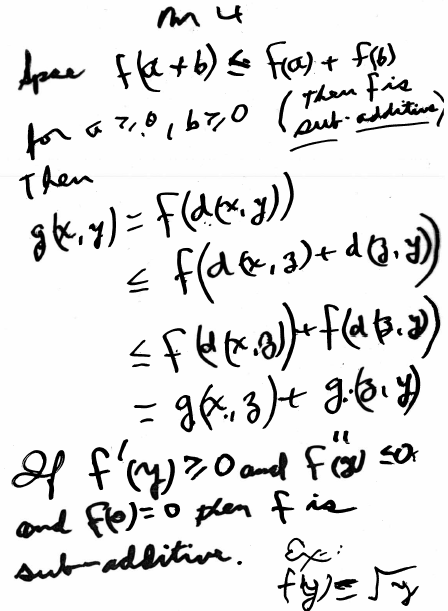 m 4
Spse f(a+b) ≤ f(a) + f(b)
for a ≥ 0, b ≥ 0 (then f is sub-additive)
Then
g(x,y) = f(d(x,y))
≤ f(d(x,z) + d(z,y))
≤ f(d(x,z)) + f(d(z,y))
= g(x,z) + g(z,y)
If f'(y) ≥ 0 and f''(y) ≤ 0
and f(0) = 0 then f is
sub-additive.
Ex:
f(y) = √y